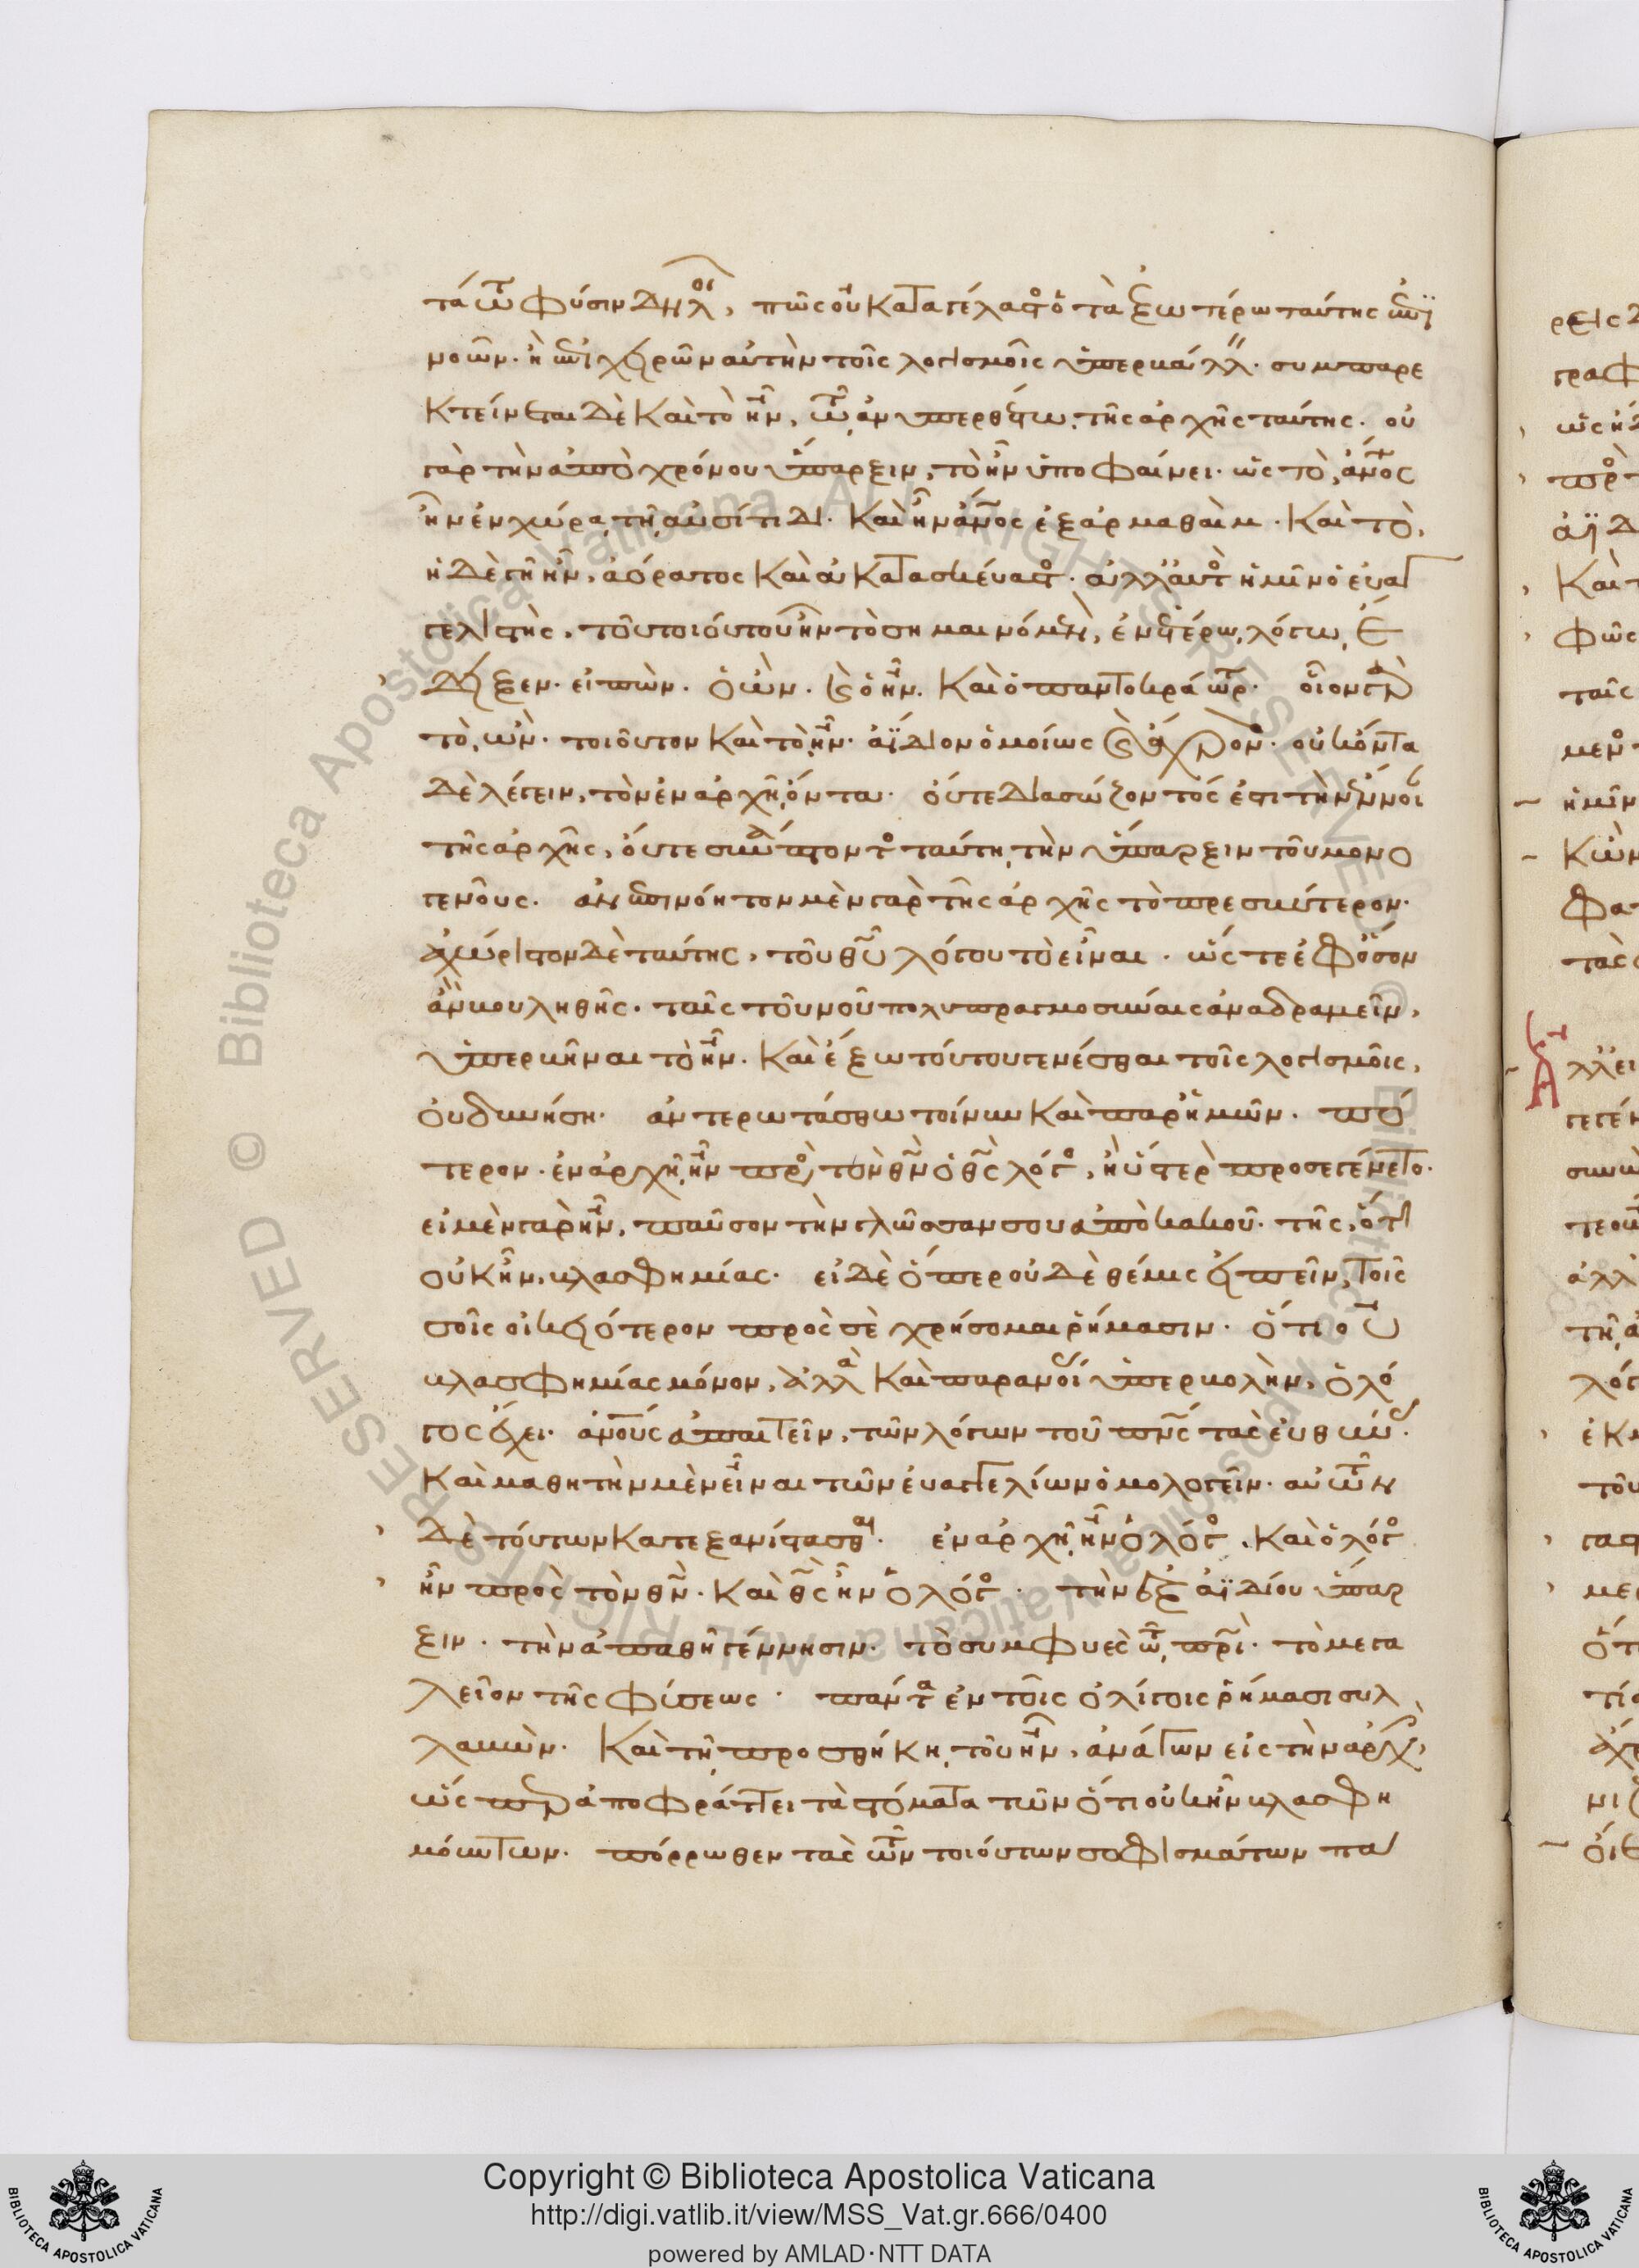 τάτων φύσιν δηλοῖ, πῶς οὐ καταγέλαστος ὁ τὰ ἐξωτέρω ταύτης ἐπι
νοῶν. ἢ ἐπιχειρῶν αὐτὴν τοῖς λογισμοῖς ὑπερβάλλειν. συμπαρε
κτείνεται δὲ καὶ τὸ ἦν, τῷ ἀνυπερθέτῳ τῆς ἀρχῆς ταύτης. οὐ
γὰρ τὴν ἀπὸ χρόνου ὕπαρξιν, τὸ ἦν ὑποφαίνει. ὡς τὸ, ἄνος
ἦν ἐν χώρᾳ τῇ αὐσίτιδι. καὶ ἦν ἄνος ἐξ ἀρμαθαὶμ. καὶ τὸ,
ἡ δὲ γῆ ἦν, ἀόρατος καὶ ἀκατασκεύαστος. ἀλλ' αὐτὸς ἡμῖν ὁ εὐαγ
γελιστὴς, τοῦ τοιούτου ἦν τὸ σημαινόμενον, ἐν ἑτέρῳ λόγῳ, ἔ
δειξεν. εἰπὼν. ὁ ὢν. καὶ ὁ ἦν. καὶ ὁ παντοκράτωρ. οἷον γὰρ
τὸ, ὢν. τοιοῦτον καὶ τὸ ἦν. ἀΐδιον ὁμοίως καὶ ἄχρονον. οὐκ ὄντα
δὲ λέγειν, τὸν ἐν ἀρχῇ ὄντα. οὔτε διασώζοντός ἐστι τὴν ἔννοιαν
τῆς ἀρχῆς, οὔτε συνάπτοντος ταύτῃ τὴν ὕπαρξιν τοῦ μονο
γενοῦς. ἀνεπινόητον μὲν γὰρ τῆς ἀρχῆς τὸ πρεσβύτερον.
ἀχώριστον δὲ ταύτης, τοῦ θῦ λόγου τὸ εἶναι. ὥστε ἐφ' ὅσον
ἂν βουληθῇς. ταῖς τοῦ νοῦ πολυπραγμοσύναις ἀναδραμεῖν,
ὑπερβῆναι τὸ ἦν. καὶ ἔξω τούτου γενέσθαι τοῖς λογισμοῖς,
οὐ δυνήσῃ. ἀντερωτάσθω τοίνυν καὶ παρ' ἡμῶν. πό
τερον. ἐν ἀρχῇ ἦν πρὸς τὸν θν ὁ θς λόγος, ἢ ὕστερον προσεγένετο.
εἰ μὲν γὰρ ἦν, παῦσον τὴν γλῶσσαν σου ἀπὸ κακοῦ. τῆς, ὅτι
οὐκ ἦν, βλασφημίας. εἰ δὲ ὅπερ οὐδὲ θέμις εἰπεῖν, τοῖς
σοῖς οἰκειότερον πρὸς σὲ χρήσομαι ῥήμασιν. ὅτι οὐ
βλασφημίας μόνον, ἀλλὰ καὶ παρανοίας ὑπερβολὴν, ὁ λό
γος ἔχει. ἀνους ἀπαιτεῖν, τῶν λόγων τοῦ πνς τὰς εὐθύνας.
καὶ μαθητὴν μὲν εἶναι τῶν εὐαγγελίων ὁμολογεῖν. αὐτῶν
δὲ τούτων κατεξανίστασθαι. ἐν ἀρχῇ ἦν ὁ λόγος. καὶ ὁ λόγος
ἦν πρὸς τὸν θν. καὶ θς ἦν ὁ λόγος. τὴν ἐξ ἀϊδίου ὕπαρ
ξιν. τὴν ἀπαθῆ γέννησιν. τὸ συμφυὲς τῷ πρι. τὸ μεγα
λεῖον τῆς φύσεως. πάντα ἐν τοῖς ὀλίγοις ῥήμασι συλ
λαβών. καὶ τῇ προσθήκῃ τοῦ ἦν, ἀνάγων εἰς τὴν ἀρχὴν,
ὥσπερ ἀποφράττει τὰ στόματα τῶν ὅτι οὐκ ἦν βλασφη
μούντων. πόρρωθεν τὰς τῶν τοιούτων σοφισμάτων πα
Copyright © Biblioteca Apostolica Vaticana
http://digi.vatlib.it/view/MSS_Vat.gr.666/0400
powered by AMLAD·NTT DATA